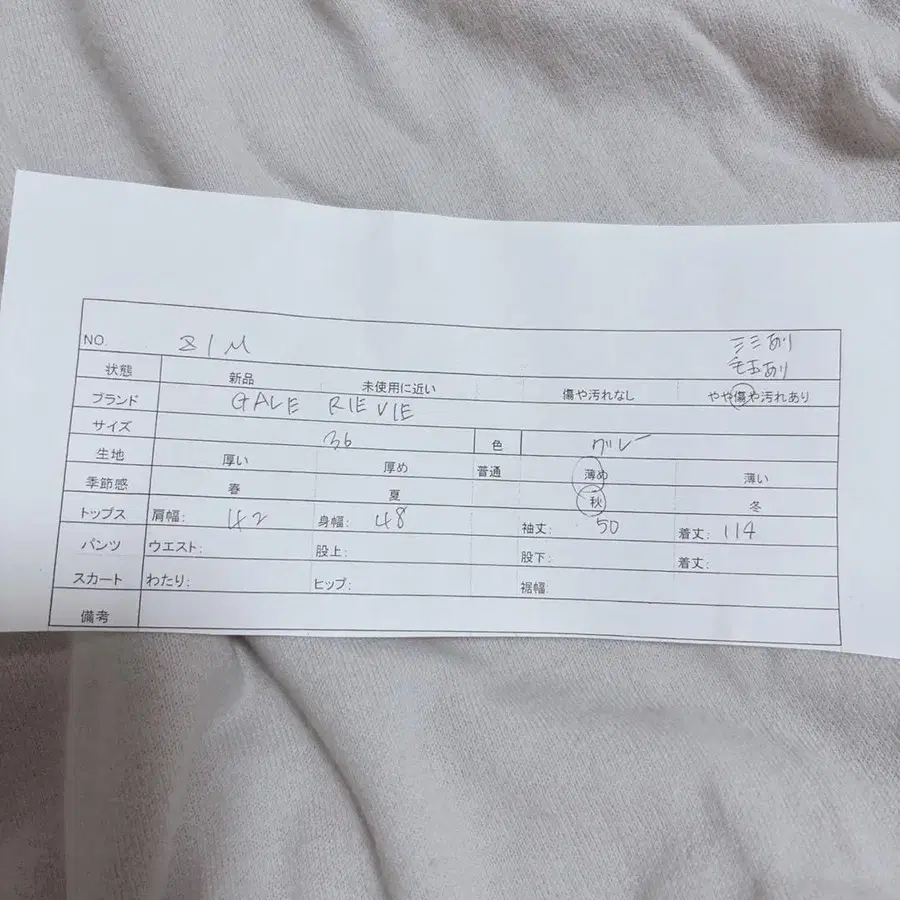 NO. 81M シミあり
毛玉あり
状態 新品 未使用に近い 傷や汚れなし やや傷や汚れあり
ブランド GALE RIE VIE
サイズ 36 色 グレー
生地 厚い 厚め 普通 薄め 薄い
季節感 春 夏 秋 冬
トップス 肩幅: 42 身幅: 48 袖丈: 50 着丈: 114
パンツ ウエスト: 股上: 股下: 着丈:
スカート わたり: ヒップ: 裾幅:
備考